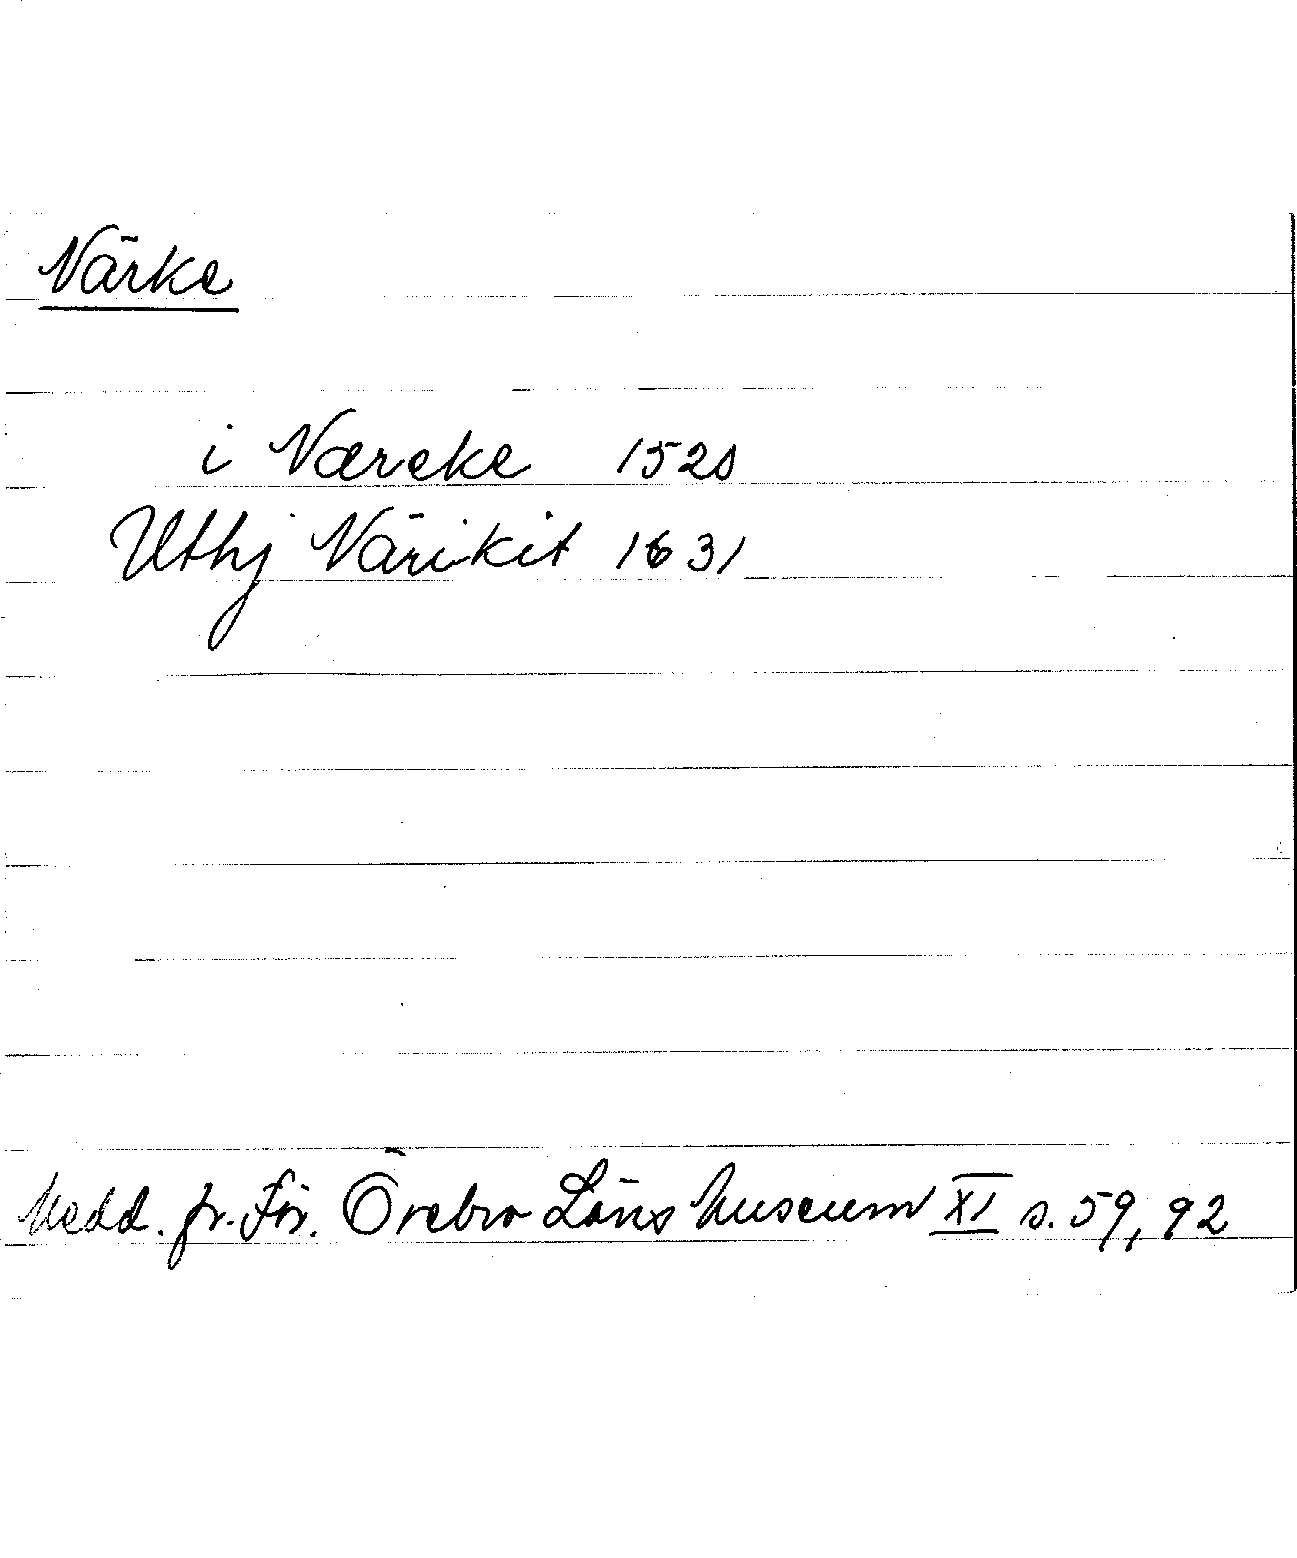 Närke
i Næreke 1520
Uthj Närikit 1631
Medd. fr. För. Örebro Läns Museum XI s. 59, 92